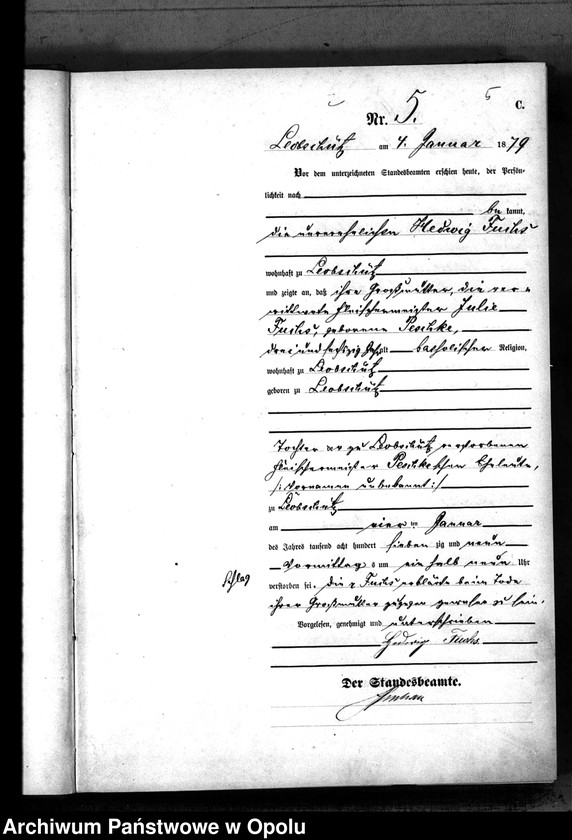 5 C.
Nr. 5.
Leobschütz am 4. Januar 1879
Vor dem unterzeichneten Standesbeamten erschien heute, der Persön-
lichkeit nach
be kannt,
die unverehelichte Hedwig Fuchs
wohnhaft zu Leobschütz
und zeigte an, daß ihre Großmutter, die ver-
wittwete Fleischermeister Julie
Fuchs, geborene Peschke,
drei und sechszig Jahr alt katholischer Religion,
wohnhaft zu Leobschütz
geboren zu Leobschütz
Tochter der zu Leobschütz verstorbenen
Fleischermeister Peschkeschen Eheleute,
/:Vornamen unbekannt:/
zu Leobschütz
am vier ten Januar
des Jahres tausend acht hundert sieben zig und neun
Vormittag s um ein halb neun Uhr
verstorben sei. Die Fuchs erklärte beim Tode
ihrer Großmutter zugegen gewesen zu sein.
Vorgelesen, genehmigt und unterschrieben
Hedwig Fuchs
Der Standesbeamte.
Archiwum Państwowe w Opolu